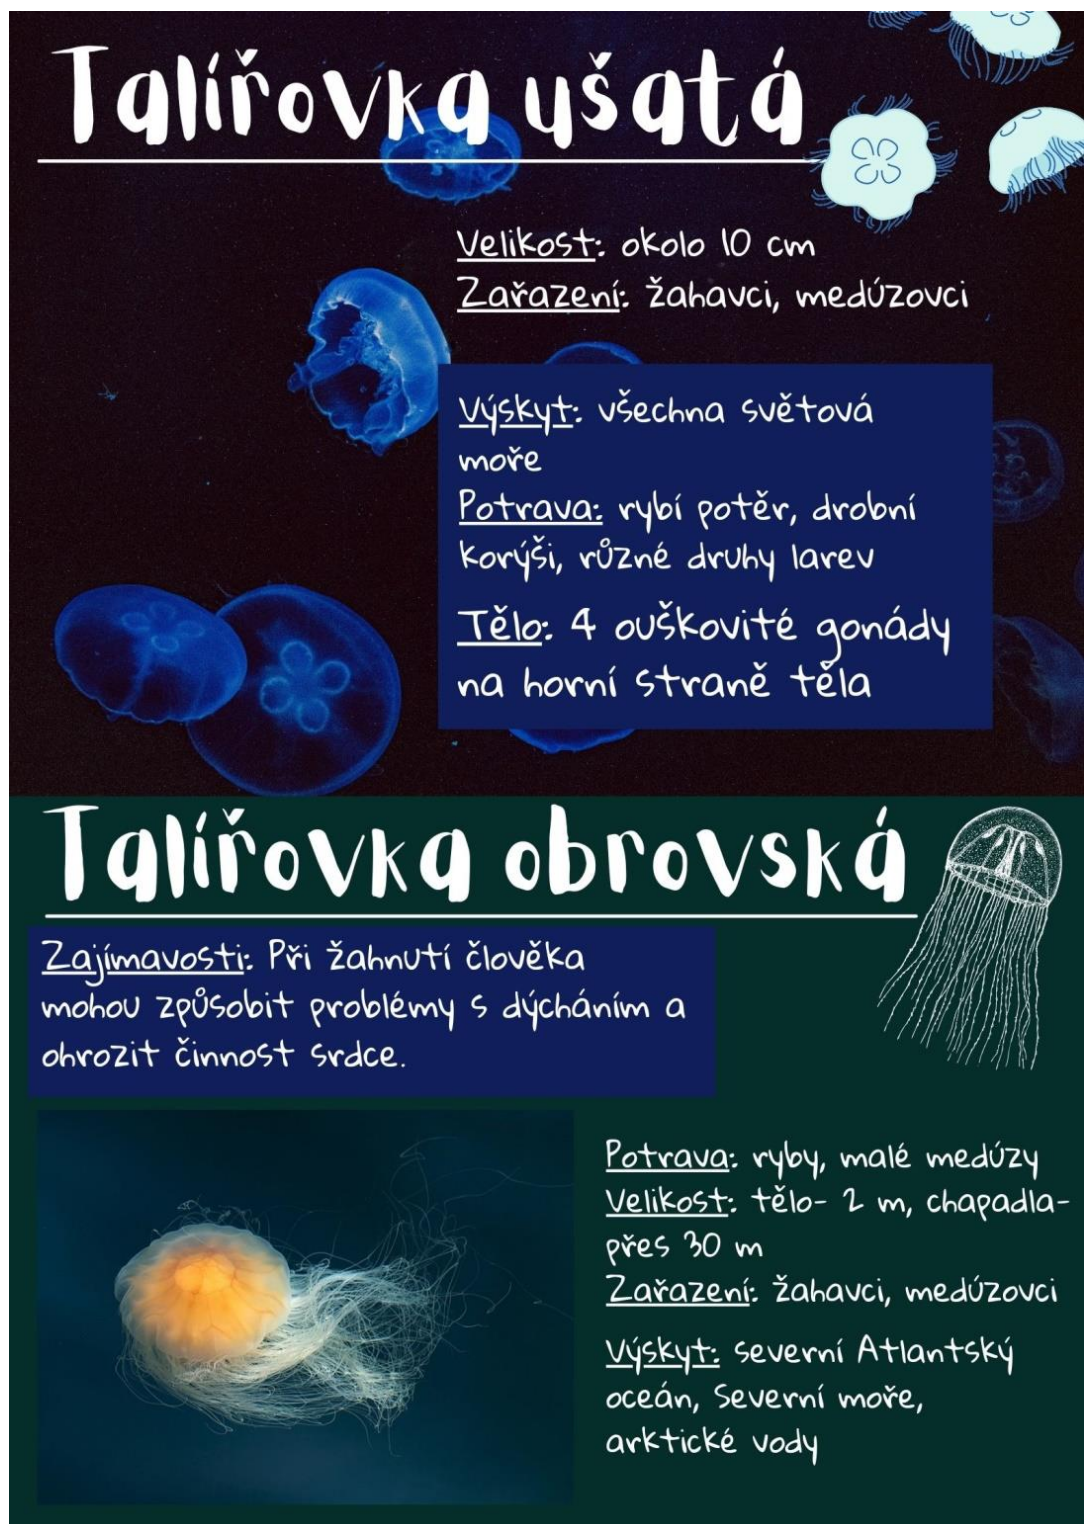 Talířovka ušatá
Velikost: okolo 10 cm
Zařazení: žahavci, medúzovci
Výskyt: všechna světová
moře
Potrava: rybí potěr, drobní
korýši, různé druhy larev
Tělo: 4 ouškovité gonády
na horní straně těla
Talířovka obrovská
Zajímavosti: Při žahnutí člověka
mohou způsobit problémy s dýcháním a
ohrozit činnost srdce.
Potrava: ryby, malé medúzy
Velikost: tělo- 2 m, chapadla-
přes 30 m
Zařazení: žahavci, medúzovci
Výskyt: severní Atlantský
oceán, Severní moře,
arktické vody